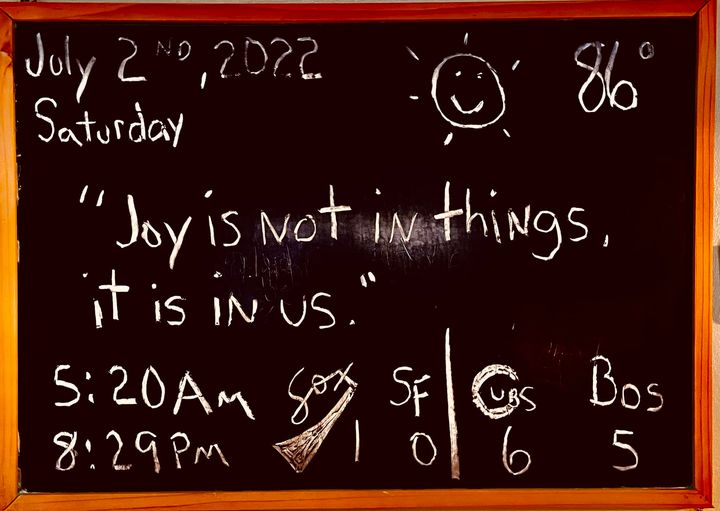 July 2ND, 2022
86°
Saturday
"Joy is not in things,
it is in us."
5:20AM SOX SF CUBS BOS
8:29PM 1 0 6 5